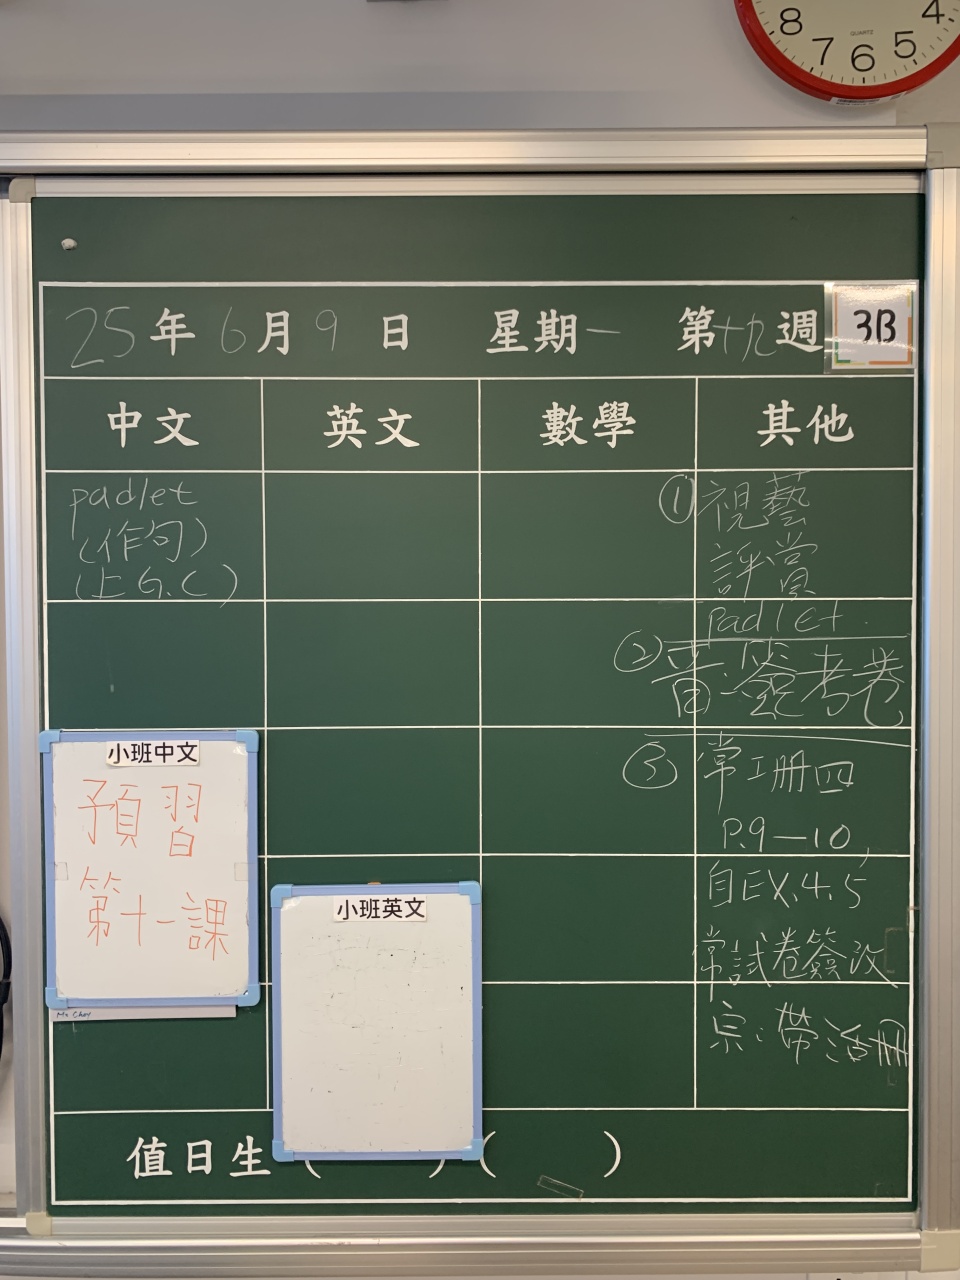 8 7 6 5 4
QUARTZ
25年 6月 9日 星期一 第十九週 3B
中文 英文 數學 其他
padlet
(作句)
(上G.C)
① 視藝
評賞
padlet.
② 音:簽考卷
③ 常工册四
P.9—10,
自EX.4.5
常試卷簽改
宗:帶活冊
小班中文
預習
第十一課
小班英文
值日生 ( ) ( )